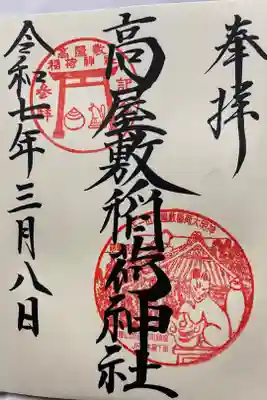 奉拝
高屋敷稲荷神社
令和七年三月八日
高屋敷
稲荷神社
参拝
記